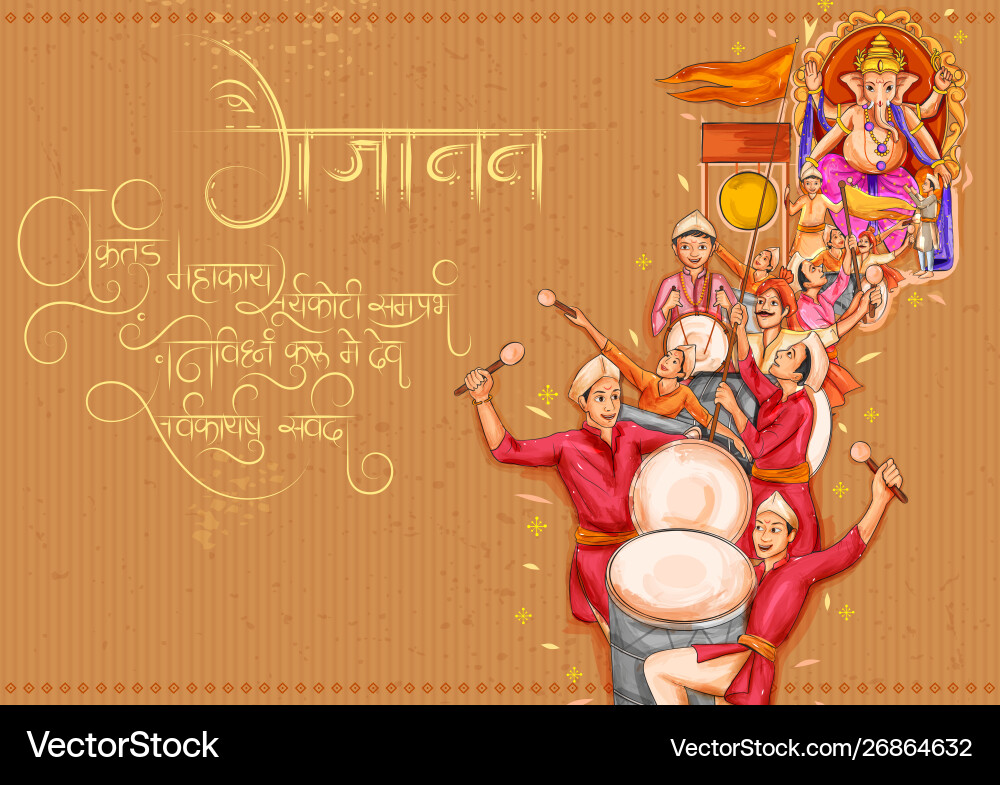 गजानन
वक्रतुंड महाकाय सूर्यकोटी समप्रभ
निर्विघ्नं कुरु मे देव
सर्वकार्येषु सर्वदा
VectorStock
VectorStock.com/26864632